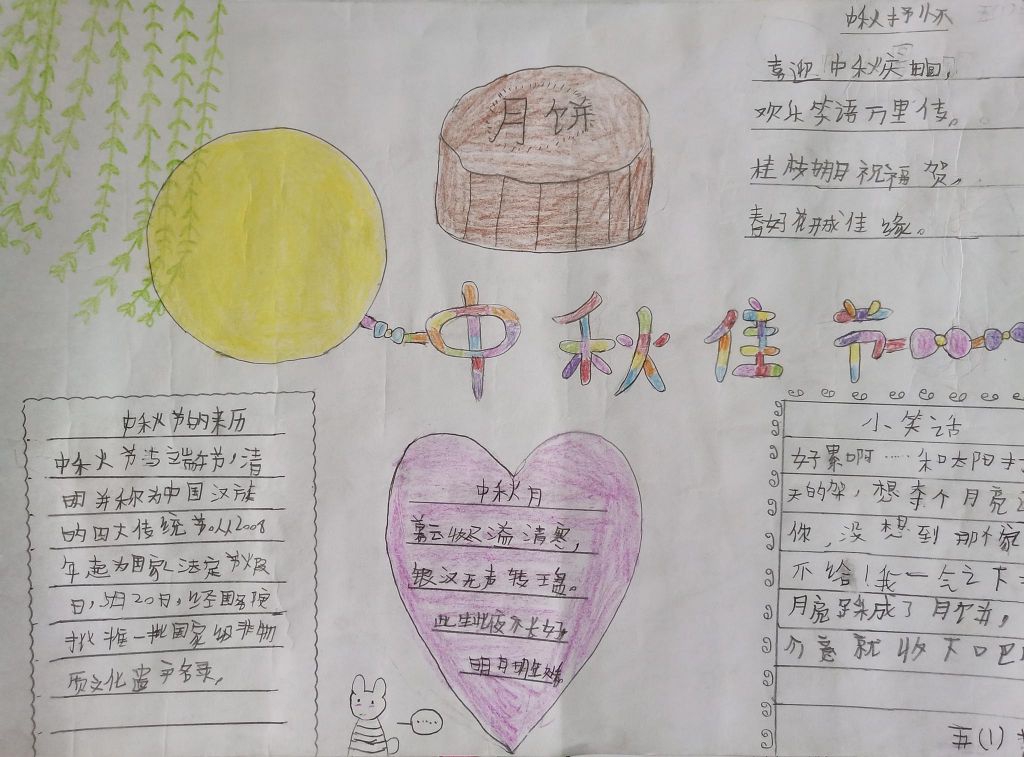 中秋抒怀
喜迎中秋庆团圆,
欢乐笑语万里传。
桂枝明日祝福贺,
春好花开城佳缘。
月饼
中秋佳节
中秋节的来历
中秋节与端午节,清
明并称为中国汉族
的四大传统节。从2008
年起为国家法定节假
日,5月20日,经国务院
批推一批国家级非物
质文化遗产名录,
中秋月
暮云收尽溢清寒,
银汉无声转玉盘。
此生此夜不长好,
明月明年
小笑话
好累啊……和太阳才
天的架,想夺个月亮
你,没想到那个家
不给!我一气之下
月亮踩成了月饼,
介意就收下
五(1)
....